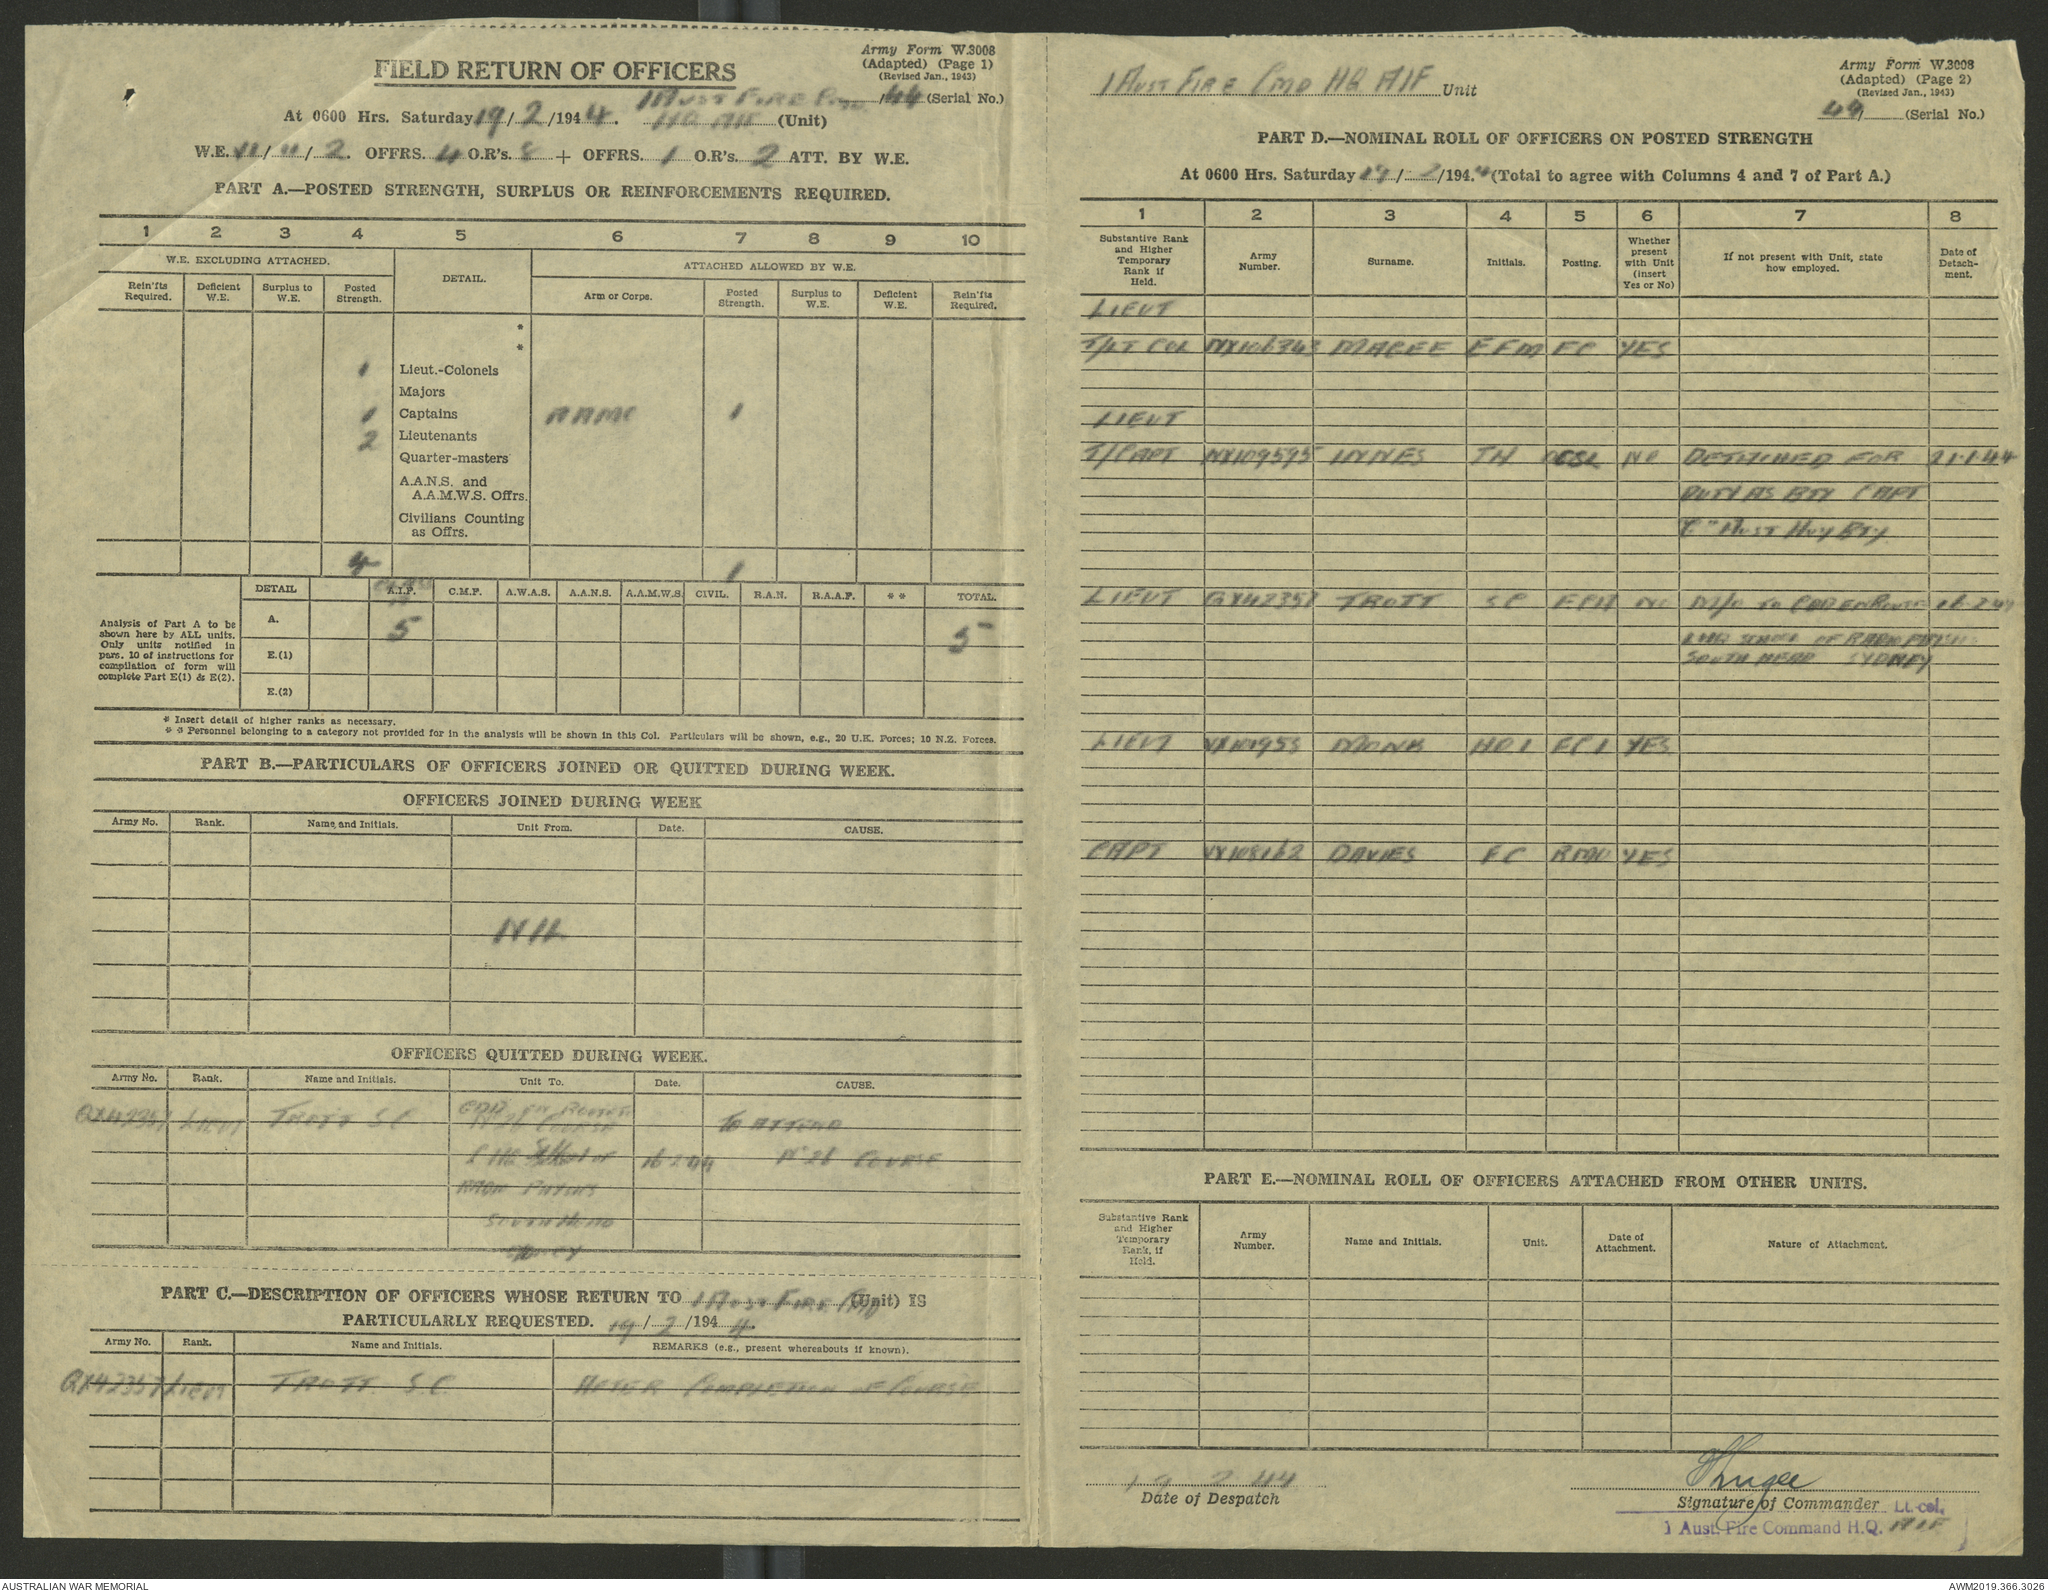 Army Form W.3008
(Adapted) (Page 1)
(Revised Jan., 1943)
FIELD RETURN OF OFFICERS
1 AUST FIRE CMD /44 (Serial No.)
At 0600 Hrs. Saturday 19/2/1944. HQ AIF (Unit)
W.E. 11/11/2. OFFRS. 4 O.R's. 8 + OFFRS. 1 O.R's. 2 ATT. BY W.E.
PART A.—POSTED STRENGTH, SURPLUS OR REINFORCEMENTS REQUIRED.
1 2 3 4 5 6 7 8 9 10
W.E. EXCLUDING ATTACHED. DETAIL. ATTACHED ALLOWED BY W.E.
Rein'fts Required. Deficient W.E. Surplus to W.E. Posted Strength. Arm or Corps. Posted Strength. Surplus to W.E. Deficient W.E. Rein'fts Required.
*
*
1 Lieut.-Colonels
Majors
1 Captains AAMC 1
2 Lieutenants
Quarter-masters
A.A.N.S. and
A.A.M.W.S. Offrs.
Civilians Counting
as Offrs.
4 1
DETAIL A.I.F. C.M.F. A.W.A.S. A.A.N.S. A.A.M.W.S. CIVIL. R.A.N. R.A.A.F. * * TOTAL.
Analysis of Part A to be
shown here by ALL units.
Only units notified in
para. 10 of instructions for
compilation of form will
complete Part E(1) & E(2).
A. 5 5
E.(1)
E.(2)
* Insert detail of higher ranks as necessary.
* * Personnel belonging to a category not provided for in the analysis will be shown in this Col. Particulars will be shown, e.g., 20 U.K. Forces; 10 N.Z. Forces.
PART B.—PARTICULARS OF OFFICERS JOINED OR QUITTED DURING WEEK.
OFFICERS JOINED DURING WEEK
Army No. Rank. Name and Initials. Unit From. Date. CAUSE.
NIL
OFFICERS QUITTED DURING WEEK.
Army No. Rank. Name and Initials. Unit To. Date. CAUSE.
QX42357 LIEUT TROTT S C EN ROUTE
No 26 COURSE TO ATTEND
LHQ SCHOOL OF 16 2 44 No 26 COURSE
RADIO PHYSICS
SOUTH HEAD
SYDNEY
PART C.—DESCRIPTION OF OFFICERS WHOSE RETURN TO 1 AUST FIRE CMD (Unit) IS
PARTICULARLY REQUESTED. 19/2/1944.
Army No. Rank. Name and Initials. REMARKS (e.g., present whereabouts if known).
QX42357 LIEUT TROTT S.C. AFTER COMPLETION OF COURSE
Army Form W.3008
(Adapted) (Page 2)
(Revised Jan., 1943)
1 AUST FIRE CMD HQ AIF Unit
44 (Serial No.)
PART D.—NOMINAL ROLL OF OFFICERS ON POSTED STRENGTH
At 0600 Hrs. Saturday 19/2/1944 (Total to agree with Columns 4 and 7 of Part A.)
1 2 3 4 5 6 7 8
Substantive Rank and Higher Temporary Rank if Held. Army Number. Surname. Initials. Posting. Whether present with Unit (insert Yes or No) If not present with Unit, state how employed. Date of Detachment.
LIEUT
T/LT COL NX106343 MAGEE E F M FC YES
LIEUT
T/CAPT NX109595 HYNES T H NO DETACHED FOR 21·1·44
DUTY AS BTY CAPT
"C" AUST HVY BTY
LIEUT QX42357 TROTT S C NO M/O TO EN ROUTE 16·2·44
LHQ SCHOOL OF RADIO PHYSICS
SOUTH HEAD SYDNEY
LIEUT MONK H D I YES
CAPT VX108162 DAVIES F C RMO YES
PART E.—NOMINAL ROLL OF OFFICERS ATTACHED FROM OTHER UNITS.
Substantive Rank and Higher Temporary Rank, if Held. Army Number. Name and Initials. Unit. Date of Attachment. Nature of Attachment.
19 2 44
Date of Despatch
Signature of Commander Lt.-col.
1 Aust. Fire Command H.Q. AIF
AUSTRALIAN WAR MEMORIAL
AWM2019.366.3026